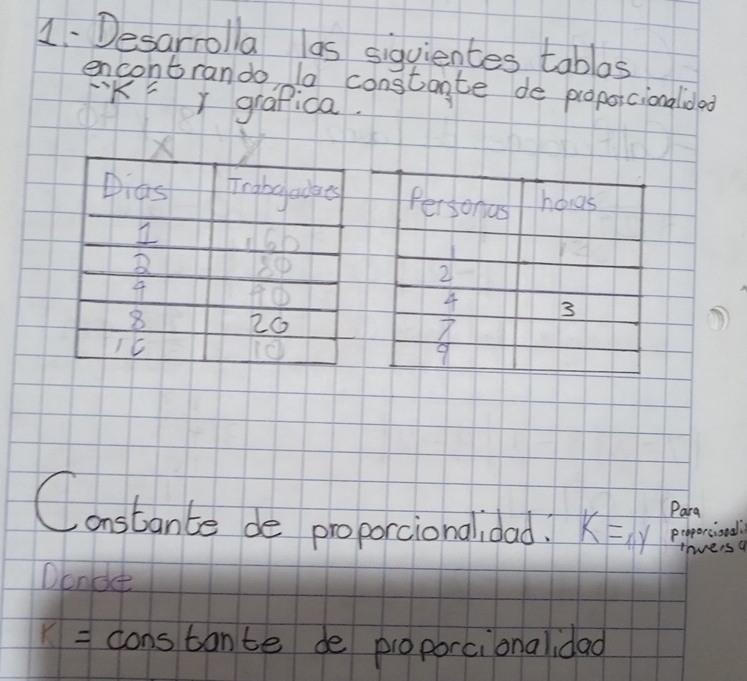 1.- Desarrolla las siguientes tablas
encontrando la constante de proporcionalidad
"K" y grafica.
x y
Dias Trabajadores
1 160
2 80
4 40
8 20
16 10
Personas horas
1 12
2
4 3
7
9
Constante de proporcionalidad: K = xy Para
proporcionali
inversa
Donde
K = constante de proporcionalidad